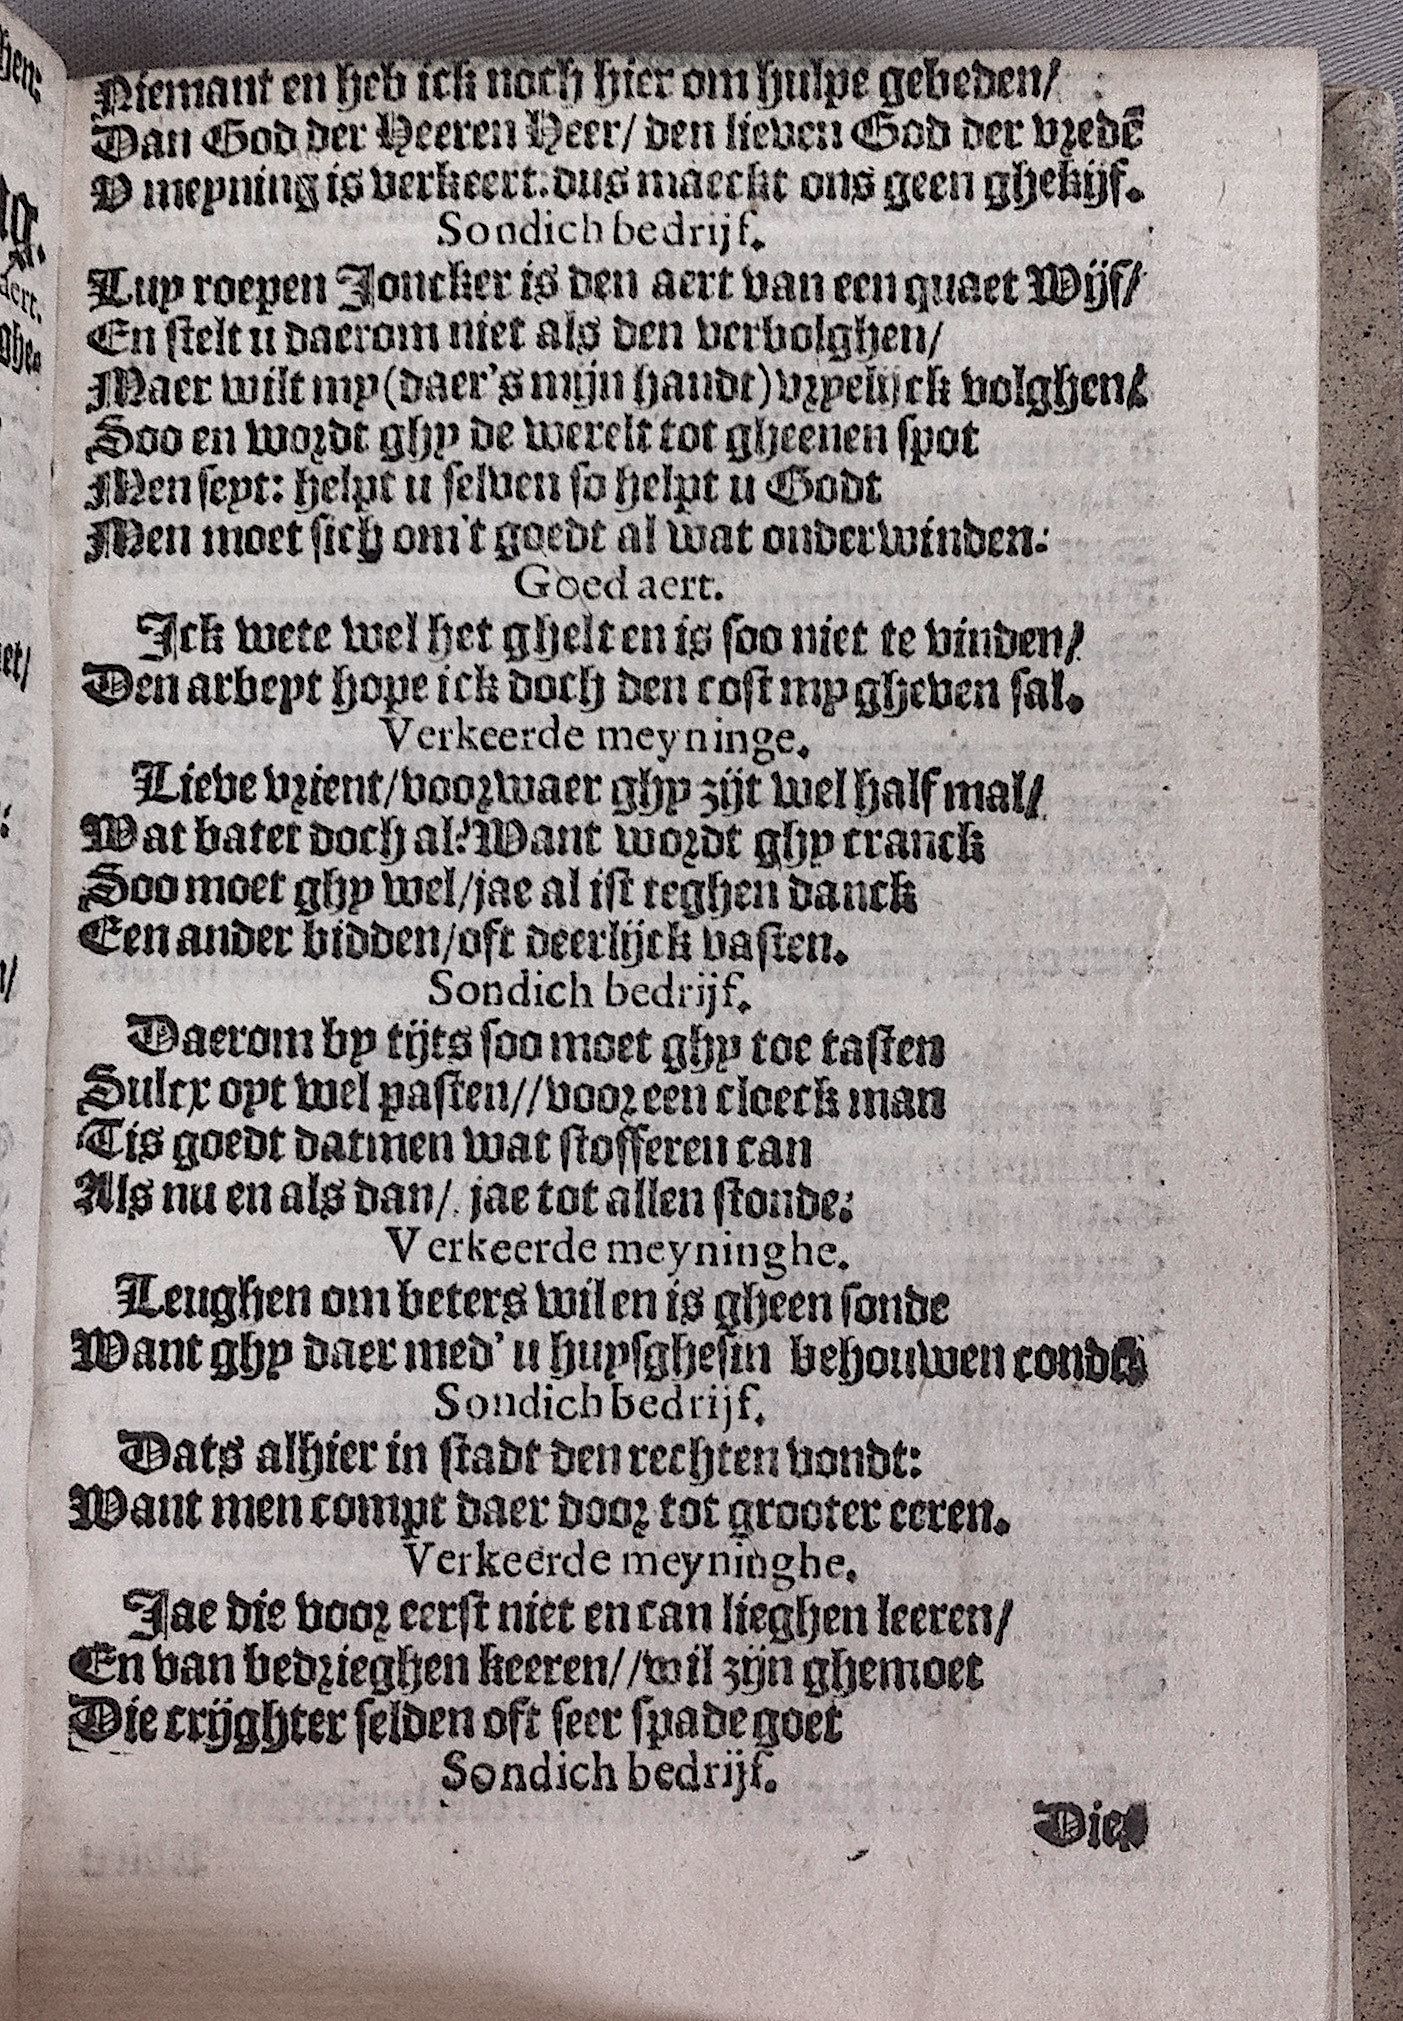 Niemant en heb ick noch hier om hulpe gebeden/
Dan God der Heeren Heer/ den lieven God der vredē
V meyning is verkeert: dus maeckt ons geen ghekijf.
Sondich bedrijf.
Luy roepen Joncker is den aert van een quaet Wijf/
En stelt u daerom niet als den verbolghen/
Maer wilt my (daer's mijn handt) vrpelijck volghen/
Soo en wordt ghy de werelt tot gheenen spot
Men seyt: helpt u selven so helpt u Godt
Men moet sich om't goedt al wat onderwinden:
Goed aert.
Ick wete wel het ghelt en is soo niet te vinden/
Den arbeyt hope ick doch den cost my gheven sal.
Verkeerde meyninge.
Lieve vrient/ voorwaer ghy zijt wel half mal/
Wat batet doch al? Want wordt ghy cranck
Soo moet ghy wel/ jae al ist teghen danck
Een ander bidden/ oft deerlijck vasten.
Sondich bedrijf.
Daerom by tijts soo moet ghy toe tasten
Sulcx oyt wel pasten// voor een cloeck man
Tis goedt datmen wat stofferen can
Als nu en als dan/ jae tot allen stonde:
Verkeerde meyninghe.
Leughen om beters wil en is gheen sonde
Want ghy daer med' u huysghesin behouwen conde
Sondich bedrijf.
Dats alhier in stadt den rechten vondt:
Want men compt daer door tot grooter eeren.
Verkeerde meyninghe.
Jae die voor eerst niet en can lieghen leeren/
En van bedrieghen keeren// wil zijn ghemoet
Die crijghter selden oft seer spade goet
Sondich bedrijf.
Die